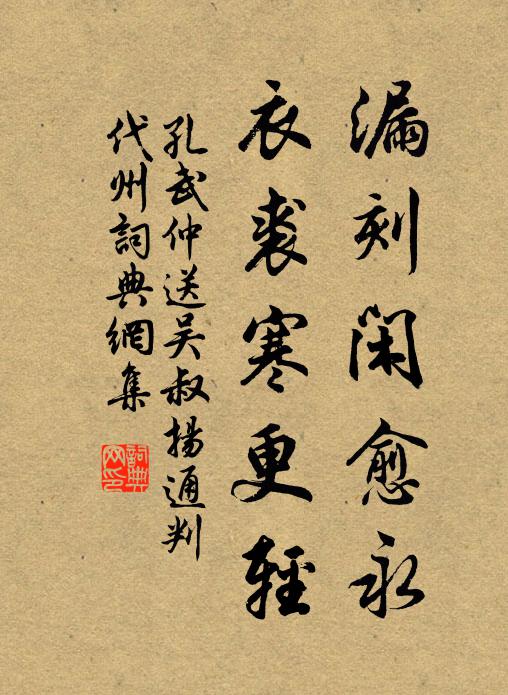 漏刻閑愈永
衣裘寒更輕
孔武仲送吴叔揚通判
代州詞典網集
詞典网印